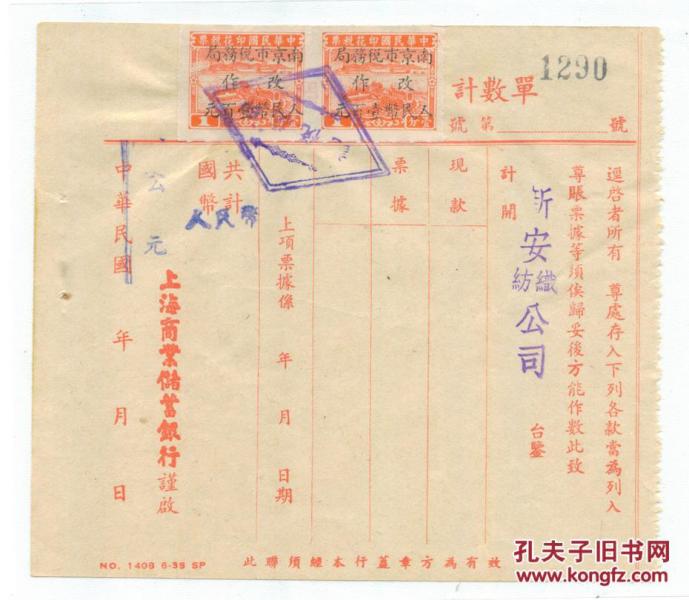 1290
單數計
號 第 號
中華民國印花稅票
南京市稅務局
改作
人民幣壹百元
中華民國印花稅票
南京市稅務局
改作
人民幣壹百元
逕啓者所有 尊處存入下列各款當為列入
尊賬票據等項俟歸妥後方能作數此致
新安紡織公司 台鑒
計開
現款
票據
上項票據係 年 月 日期
共計
國幣
人民幣
上海商業儲蓄銀行謹啟
公元
中華民國 年 月 日
NO. 1408 6-38 SP
此聯須經本行蓋章方為有效
孔夫子旧书网
www.kongfz.com